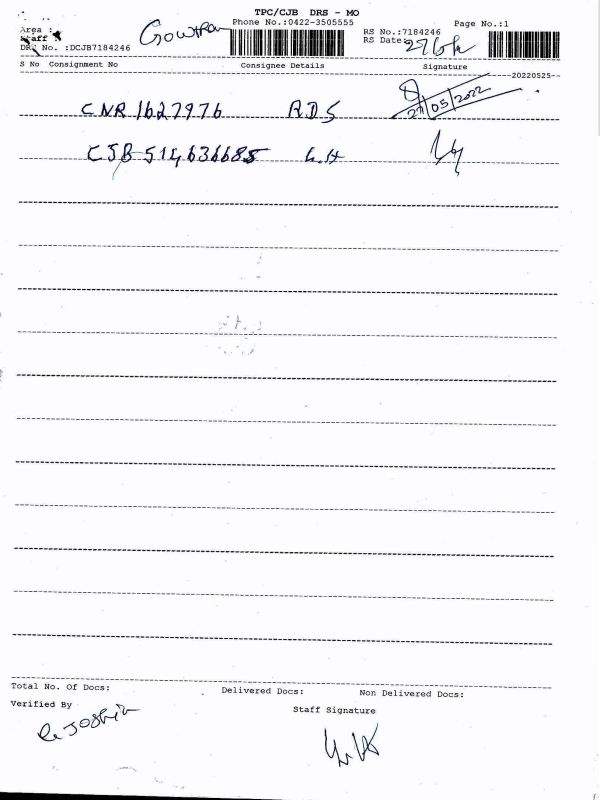 TPC/CJB DRS - MO
Area :
Phone No.:0422-3505555
Page No.:1
Staff :
RS No.:7184246
DRS No. :DCJB7184246
RS Date:
S No Consignment No
Consignee Details
Signature
--20220525--
CNR 1627976 R.D.S
27/05/2022
CJB 514636685
Total No. Of Docs:
Delivered Docs:
Non Delivered Docs:
Verified By
Staff Signature